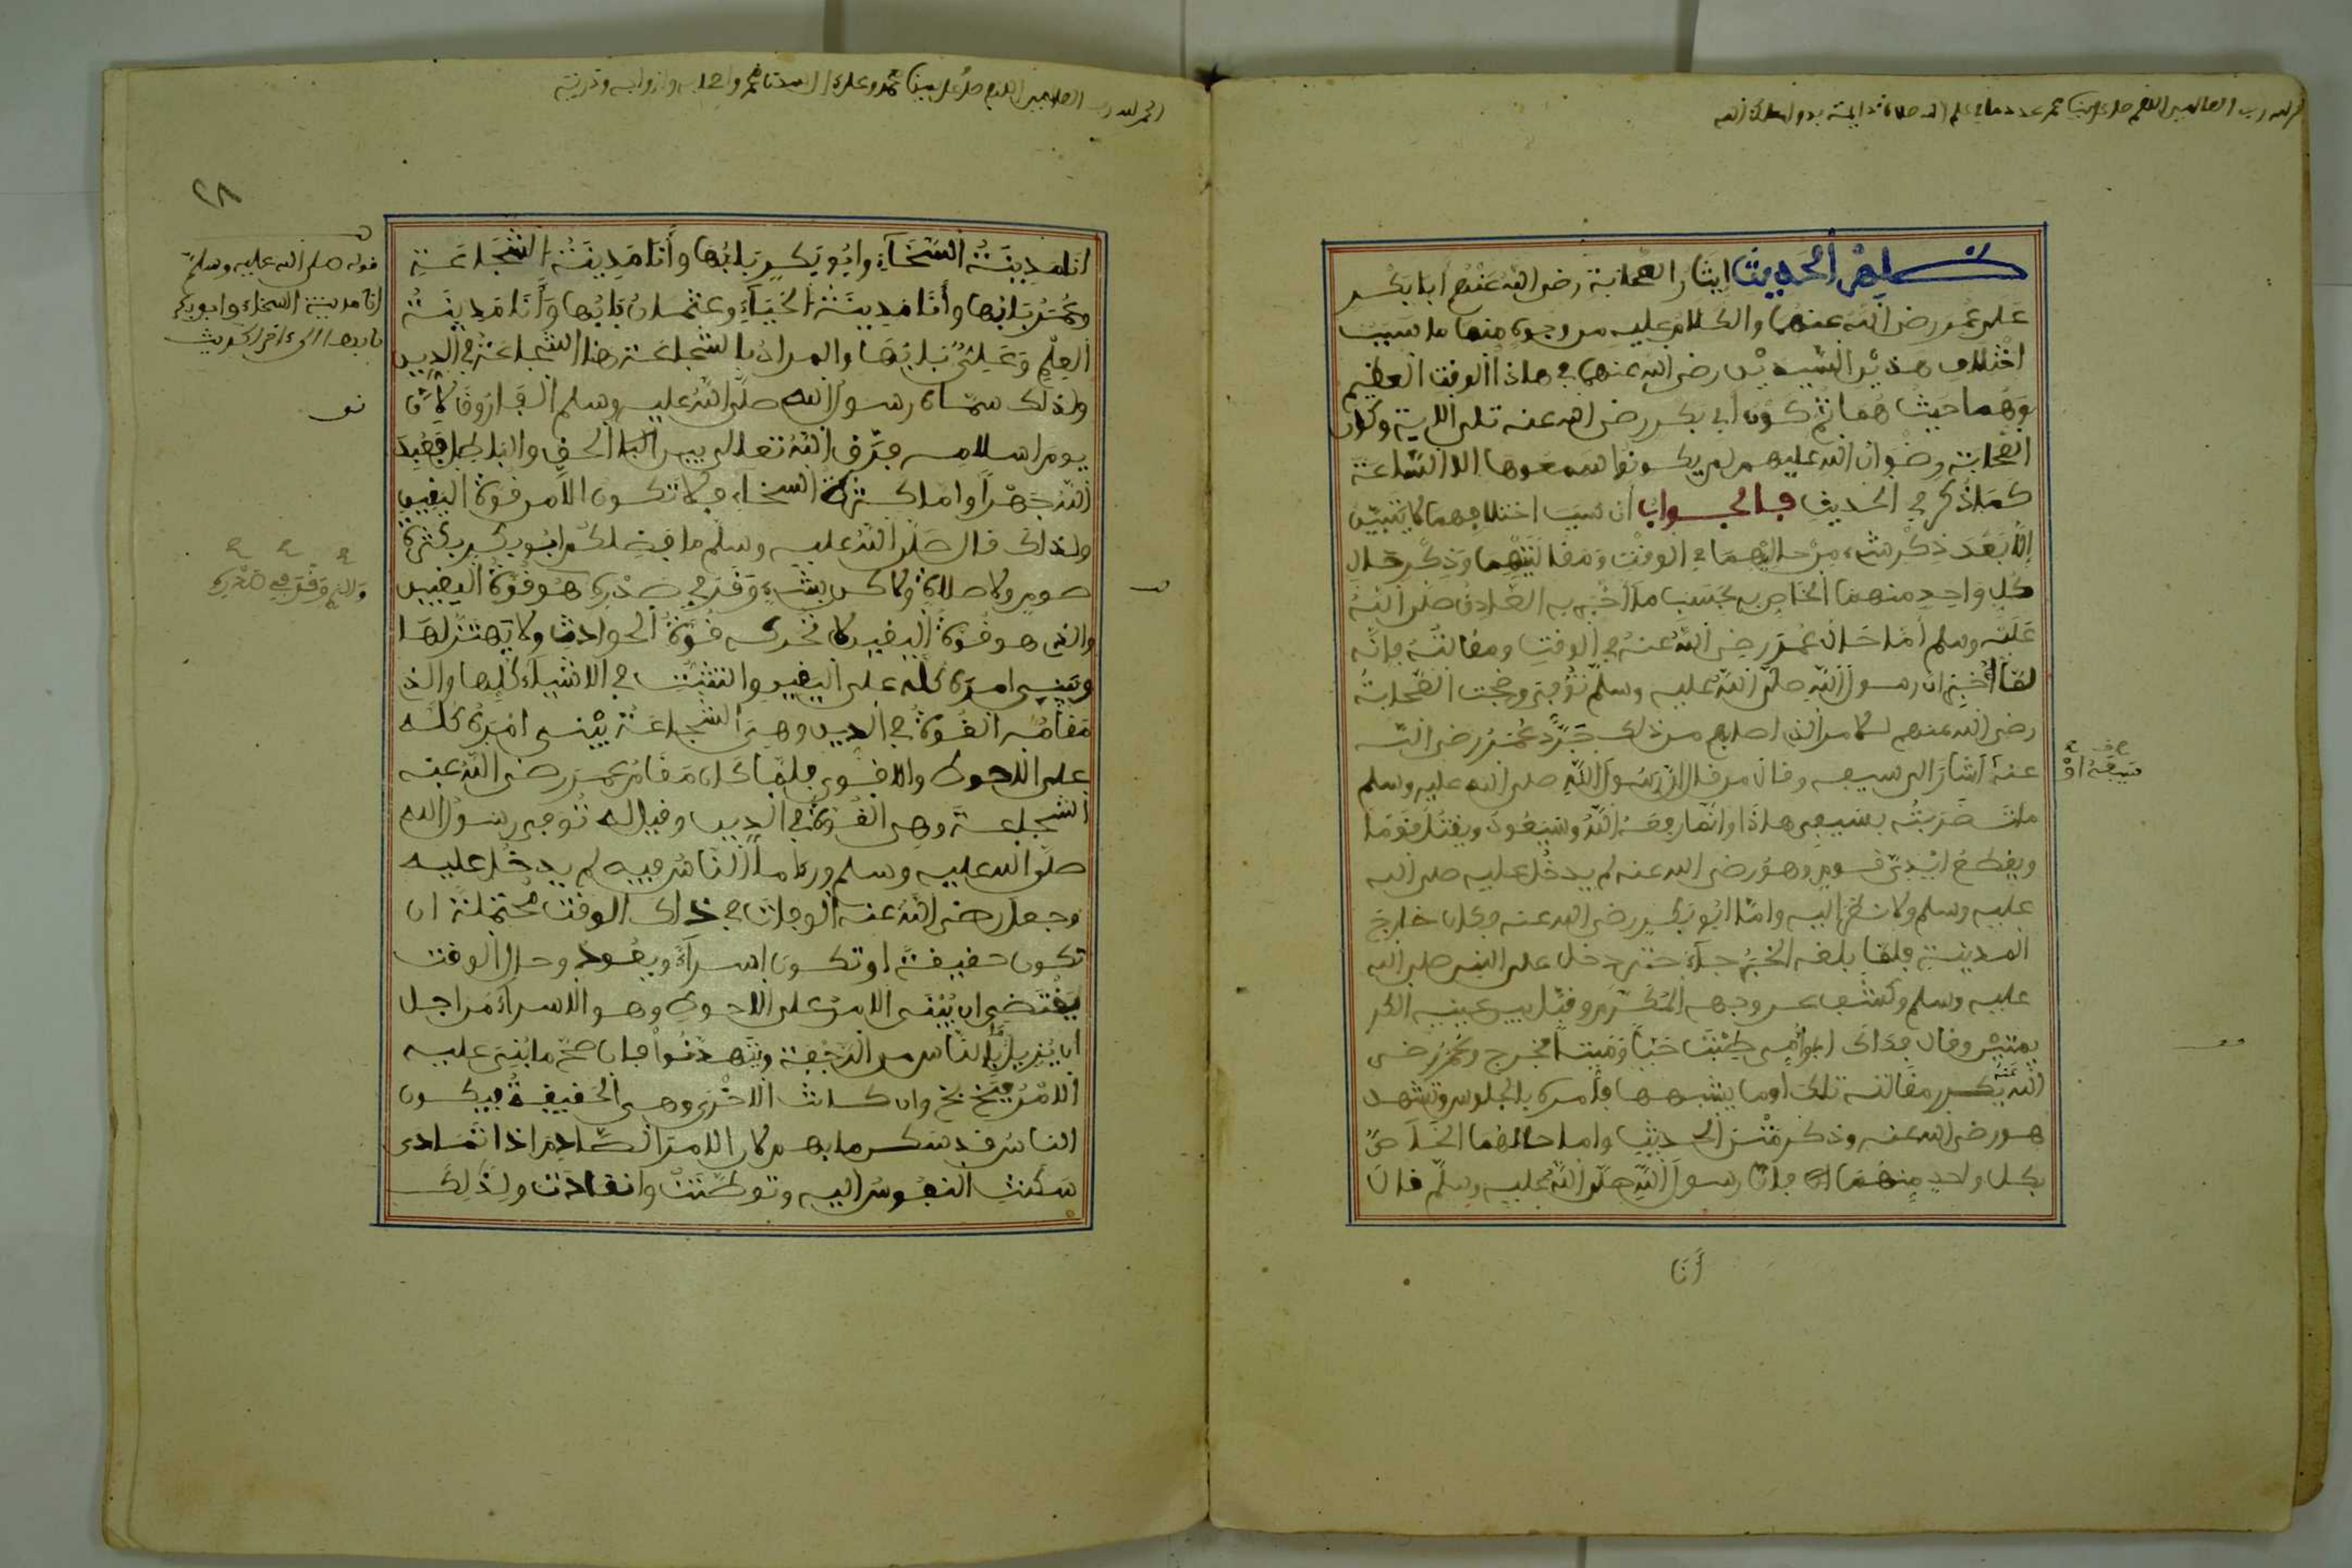 الحمد لله رب العالمين اللهم صل على نبينا محمد عدد ما في علم الله صلاة دائمة بدوام ملك الله
ظاهر الحديث ايثار الصحابة رضى الله عنهم أبا بكر
على عمر رضى الله عنهما والكلام عليه من وجوه منها ما سبب
اختلاف هذين السيدين رضى الله عنهما في هاذا الوقت العظيم
وهما حيث هما ثم كون أبي بكر رضى الله عنه تلى الاية وكأن
الصحابة رضوان الله عليهم لم يكونوا سمعوها الا الساعة
كما ذكر في الحديث فالجواب أن سبب اختلافهما لا يتبين
إلا بعد ذكر شيء من حاليهما في الوقت ومقالتهما وذكر حال
كل واحد منهما الخاص به بحسب ما أخبر به الصادق صلى الله
عليه وسلم أما حال عمر رضى الله عنه في الوقت ومقالته فإنه
لما أخبر ان رسول الله صلى الله عليه وسلم توفى وضجت الصحابة
رضى الله عنهم للامر الذي اصابهم من ذلك جرد عمر رضى الله
عنه أشار الى سيفه وقال من قال ان رسول الله صلى الله عليه وسلم
سيفه أو
مات ضربته بسيفي هاذا وانما رفعه الله وسيعود ويقتل قوما
ويقطع ايدي قوم وهو رضى الله عنه لم يدخل عليه صلى الله
عليه وسلم ولا نظر اليه واما ابو بكر رضى الله عنه فكان خارج
المدينة فلما بلغه الخبر جاء حتى دخل على النبى صلى الله
عليه وسلم وكشف عن وجهه المكرم وقبل بين عينيه الكر
يمتين وقال فداك ابى وأمى طبت حيا وميتا فخرج وعمر رضى
الله عنه يكرر مقالته تلك أو ما يشبهها فأمره بالجلوس وتشهد
هو رضى الله عنه وذكر متن الحديث واما حالهما الخاص
بكل واحد منهما فان رسول الله صلى الله عليه وسلم قال
أنا
الحمد لله رب العالمين اللهم صل على نبينا محمد وعلى ال سيدنا محمد واصحابه وازواجه وذريته
٢٨
انا مدينة السخاء وابو بكر بابها وأنا مدينة الشجاعة
وعمر بابها وأنا مدينة الحياء وعثمان بابها وأنا مدينة
العلم وعلي بابها والمراد بالشجاعة هنا الشجاعة في الدين
ولذلك سماه رسول الله صلى الله عليه وسلم الفاروق لأن
يوم اسلامه فرق الله تعالى بين الحق والباطل فعبد
الله جهرا واما كثرة السخاء فلا تكون الا من قوة اليقين
ولذلك قال صلى الله عليه وسلم ما فضلكم ابو بكر بكثرة
صوم ولا صلاة ولا كن بشيء وقر في صدره هو قوة اليقين
والذي هو قوة اليقين لا تحركه قوة الحوادث ولا يهتز لها
ويبنى امره كله على اليقين والتثبت في الاشياء كلها والذي
مقامه القوة في الدين وهي الشجاعة يبنى امره كله
على الاحوط والاقوى فلما كان مقام عمر رضى الله عنه
الشجاعة وهى القوة في الدين وقيل له توفي رسول الله
صلى الله عليه وسلم ورءا ما الناس فيه لم يدخل عليه
وجعل رضى الله عنه الوفاة في ذاك الوقت محتملة ان
تكون حقيقة او تكون اسراء ويعود وحال الوقت
يقتضى ان يبنى الامر على الاحوط وهو الاسراء من اجل
ان يزيل ما بالناس من الرجفة ويتهدنوا فإن صح ما بنى عليه
الامر فبخ بخ وان كانت الاخرى وهى الحقيقة فيكون
الناس قد سكن ما بهم لان الامر الصادم اذا تمادى
سكنت النفوس اليه وتوطنت وانقادت ولذلك
قوله صلى الله عليه وسلم
انا مدينة السخاء وابو بكر
بابها الى ءاخر الحديث